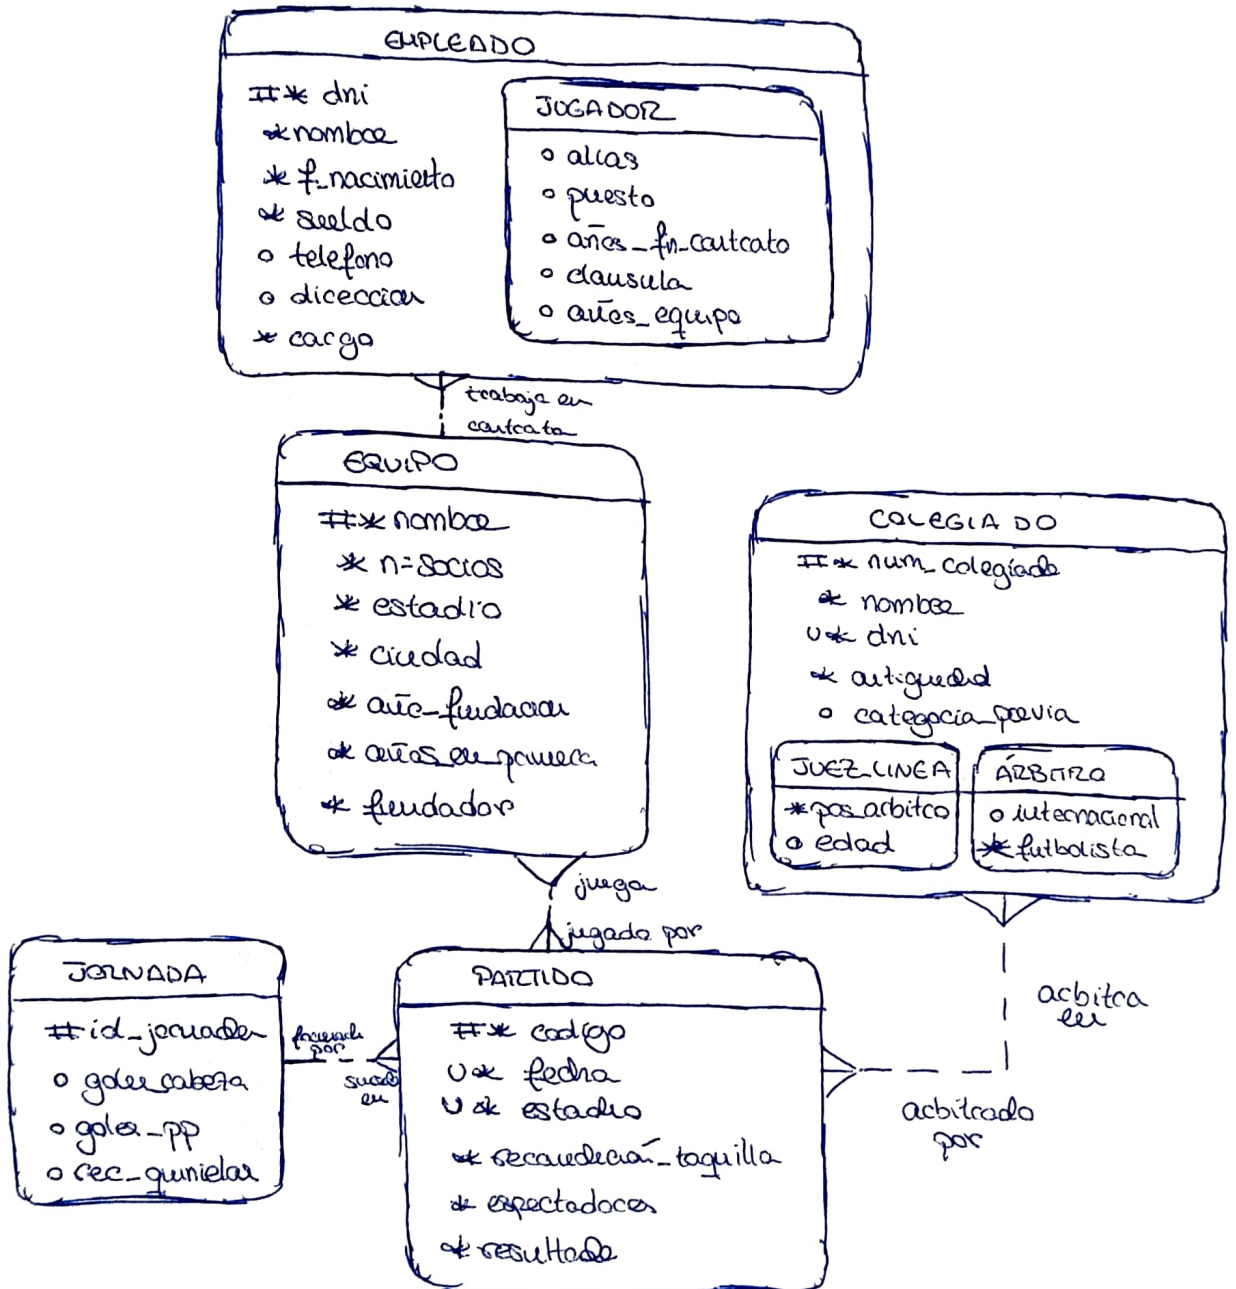 EMPLEADO
#* dni
* nombre
* f_nacimiento
* sueldo
o telefono
o direccion
* cargo
JUGADOR
o alias
o puesto
o años_fin_contrato
o clausula
o años_equipo
trabaja en
contrata
EQUIPO
#* nombre
* nº socios
* estadio
* ciudad
* año_fundacion
* años_en_primera
* fundador
COLEGIADO
#* num_colegiado
* nombre
U* dni
* antiguedad
o categoria_previa
JUEZ_LINEA
* pos_arbitro
o edad
ÁRBITRO
o internacional
* futbolista
juega
jugado por
JORNADA
# id_jornada
o goles_cabeza
o goles_pp
o rec_quinielas
formada
por
sucede
en
PARTIDO
#* codigo
U* fecha
U* estadio
* recaudación_taquilla
* espectadores
* resultado
arbitra
en
arbitrado
por